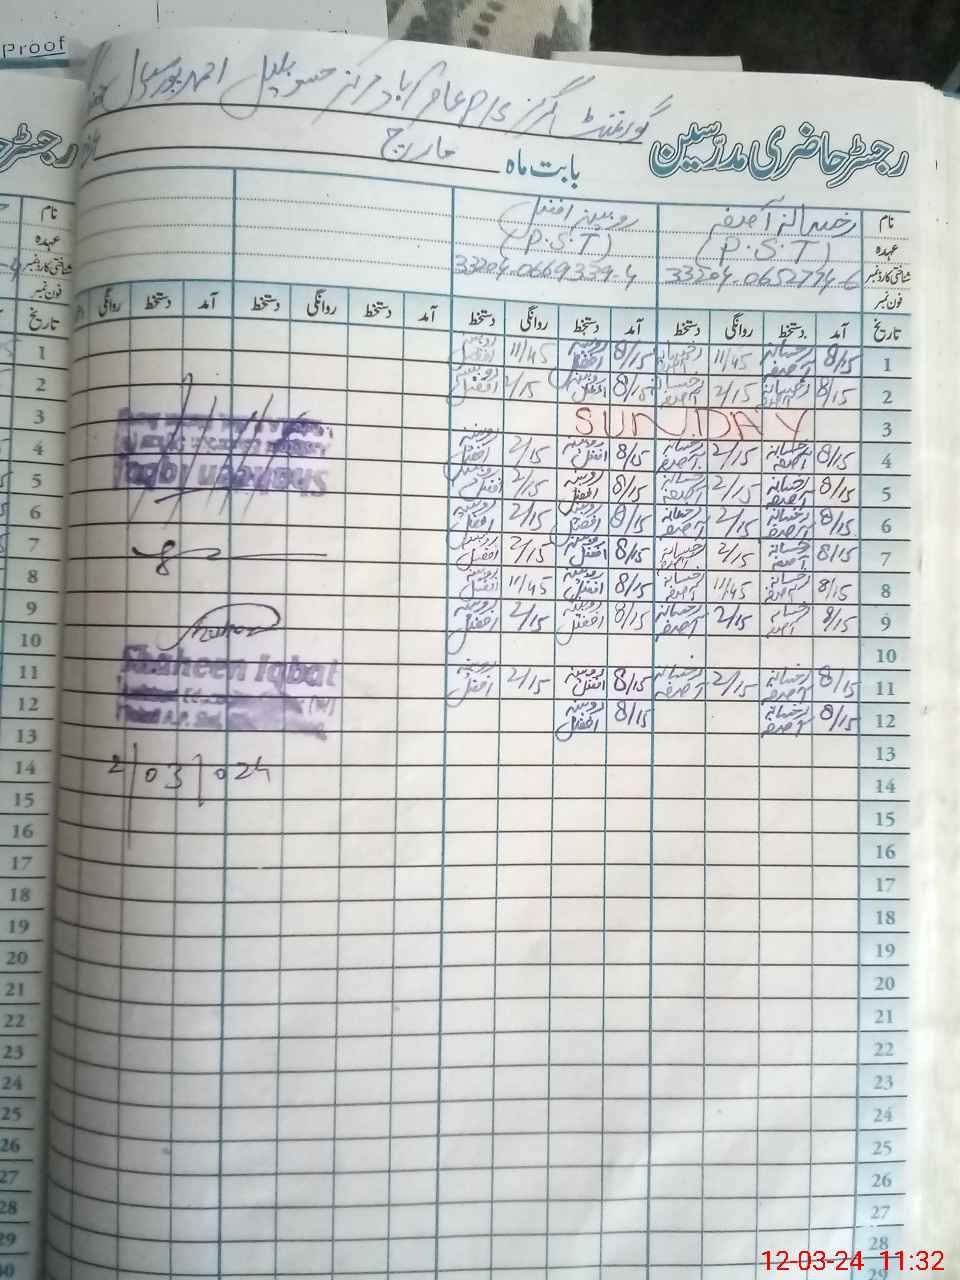 Proof
گورنمنٹ گرلز P/S
رجسٹر حاضری مدرّسین
بابت ماہ مارچ
نام رخسانہ آصفہ روبینہ افضل
عہدہ (P.S.T) (P.S.T)
شناختی کارڈ نمبر 33204-0652774-6 33204-0669339-4
فون نمبر
تاریخ آمد دستخط روانگی دستخط آمد دستخط روانگی دستخط آمد دستخط روانگی دستخط آمد دستخط روانگی
1 8/15 رخسانہ آصفہ 11/45 رخسانہ آصفہ 8/15 روبینہ افضل 11/45 روبینہ افضل
2 8/15 رخسانہ آصفہ 2/15 رخسانہ آصفہ 8/15 روبینہ افضل 2/15 روبینہ افضل
3 SUNDAY
4 8/15 رخسانہ آصفہ 2/15 رخسانہ آصفہ 8/15 روبینہ افضل 2/15 روبینہ افضل
5 8/15 رخسانہ آصفہ 2/15 رخسانہ آصفہ 8/15 روبینہ افضل 2/15 روبینہ افضل
6 8/15 رخسانہ آصفہ 2/15 رخسانہ آصفہ 8/15 روبینہ افضل 2/15 روبینہ افضل
7 8/15 رخسانہ آصفہ 2/15 رخسانہ آصفہ 8/15 روبینہ افضل 2/15 روبینہ افضل
8 8/15 رخسانہ آصفہ 11/45 رخسانہ آصفہ 8/15 روبینہ افضل 11/45 روبینہ افضل
9 8/15 رخسانہ آصفہ 2/15 رخسانہ آصفہ 8/15 روبینہ افضل 2/15 روبینہ افضل
10
11 8/15 رخسانہ آصفہ 2/15 رخسانہ آصفہ 8/15 روبینہ افضل 2/15 روبینہ افضل
12 8/15 رخسانہ آصفہ 8/15 روبینہ افضل
13
14
15
16
17
18
19
20
21
22
23
24
25
26
27
28
29
Shaheen Iqbal
Shaheen Iqbal
2/03/024
1
2
3
4
5
6
7
8
9
10
11
12
13
14
15
16
17
18
19
20
21
22
23
24
25
26
27
28
29
30
12-03-24 11:32